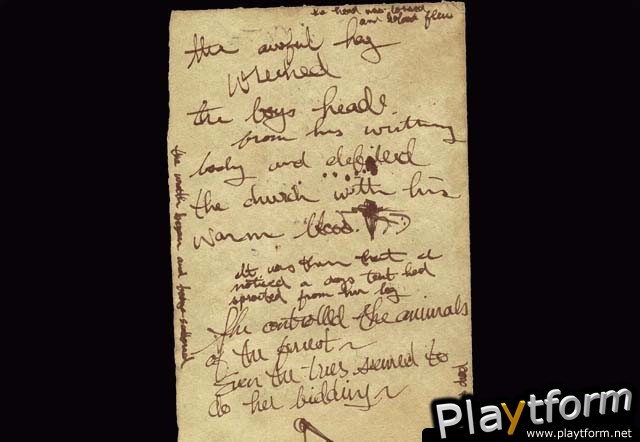 his head was tossed
and blood flew
the awful hag
wrenched
the boys head
from his writhing
body and defiled
the church with his
warm blood.
It was then that I
noticed a dogs teat had
sprouted from her leg
She controlled the animals
of the forrest ~
Even the trees seemed to
do her bidding ~
the wrath began and
Playtform
www.playtform.net